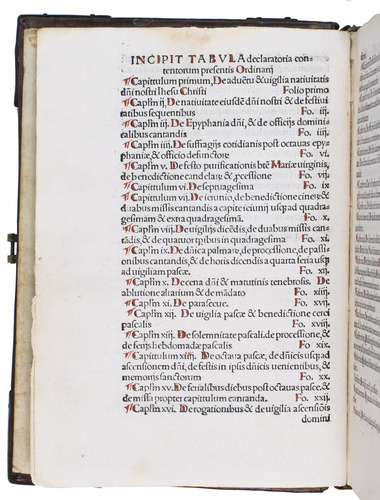 INCIPIT TABVLA declaratoria con
tentorum presentis Ordinarij
¶Capitulum primum, De aduētu & uigilia natiuitatis
dñi nostri Ihesu Christi Folio primo
¶Caplm ij, De natiuitate eiusdē dñi nostri & de festiui
tatibus sequentibus Fo. iij.
¶Caplm iij. De Epyphania dñi, & de officijs domini
calibus cantandis Fo. iiij.
¶Caplm iiij. De suffragijs cotidianis post octauas epy
phaniæ, & officio defunctorꝝ Fo. vi.
¶Caplm v. De festo purificationis btē Mariæ uirginis,
de benedictione candelarꝝ & ꝓcessione Fo. vij
¶Capitulum vi. De septuagesima Fo. ix
¶Capitulum vij. De ieiunio, de benedictione cinerꝝ &
duabus missis cantandis a capite ieiunij usq̄ ad quadra
gesimam & extra quadragesimā. Fo. x.
¶Caplm viij. De uigilijs dicēdis, de duabus missis can
tandis, & de quatuor tp̄ibus in quadragesima Fo. xi.
¶Caplm ix. De dñica palmarꝝ, de processione, de passi
onibus cantandis, & de horis dicendis a quarta feria usq̄
ad uigiliam pascæ. Fo. xij.
¶Caplm x. De cena dñi & matutinis tenebrosis. De
ablutione altarium & de mādato Fo. xiij.
¶Caplm xi. De parasceue. Fo. xvij.
¶Caplm xij. De uigilia pascæ & benedictione cerei
pascalis Fo. xviij.
¶Caplm xiij. De solemnitate pascali, de processione, &
de ferijs hebdomadæ pascalis Fo. xix.
¶Capitulum xiiij. De octaua pascæ, de dñicis usq̄ ad
ascensionem dñi, de festis in ipsis dñicis uenientibus, &
memorijs sanctorum Fo. xx.
¶Caplm xv. De ferialibus diebus post octauas pascæ. &
de missa propter capitulum cantanda. Fo. xxij.
¶Caplm xvi. De rogationibus & de uigilia ascensiōis
domini